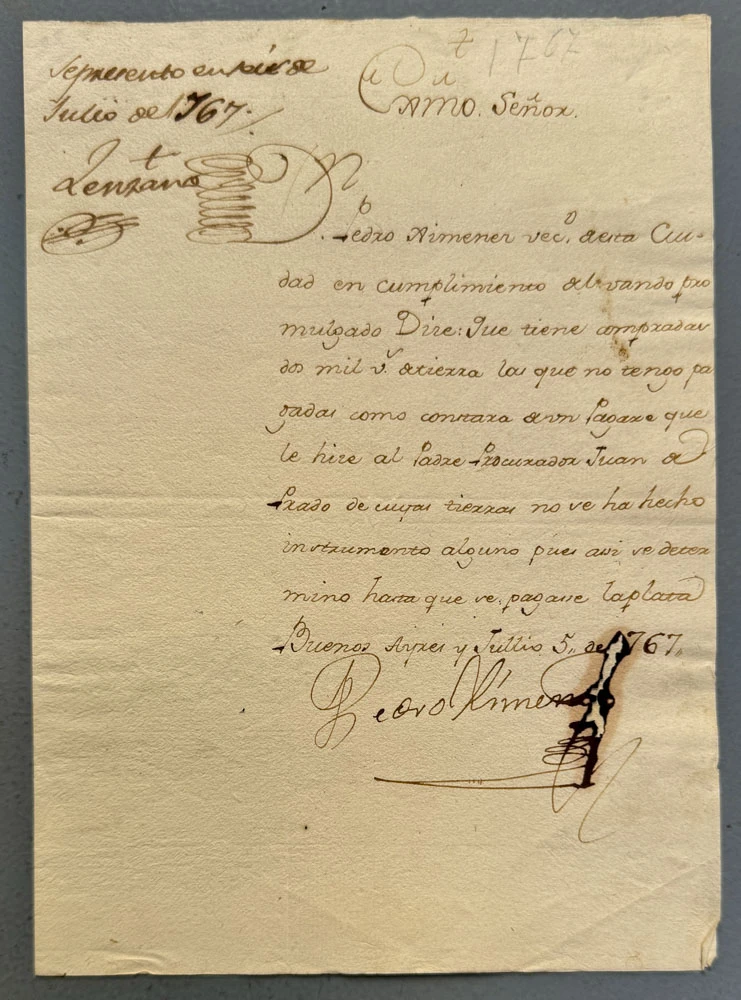 Se presento en seis de
Julio de 1767.
Lenzano
1767
Exmo. Señor.
Dn Pedro Ximenez veco. desta Ciu-
dad en cumplimiento del vando pro
mulgado Dire: Que tiene compradas
dos mil vs. de tierra las que no tengo pa
gadas como constara de un Pagare que
le hize al Padre Procurador Juan de
Prado de cuyas tierras no se ha hecho
instrumento alguno pues asi se deter
mino hasta que se pagase la plata
Buenos Ayres y Jullio 5,, de 1767,,
Pedro Ximenez